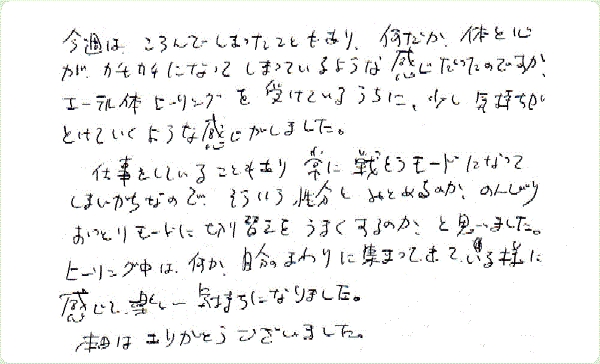 今週は、ころんでしまったこともあり、何だか、体と心
が、カチカチになってしまっているような感じだったのですが、
エーテル体ヒーリングを受けているうちに、少し気持ちが
とけていくような感じがしました。
仕事をしていることもあり常に戦うモードになって
しまいがちなので、そういう性分とみとめるのか、のんびり
おっとりモードに切り替えをうまくするのか、と思いました。
ヒーリング中は、何か、自分のまわりに集まってきている様に
感じて、楽しい気持ちになりました。
本日はありがとうございました。